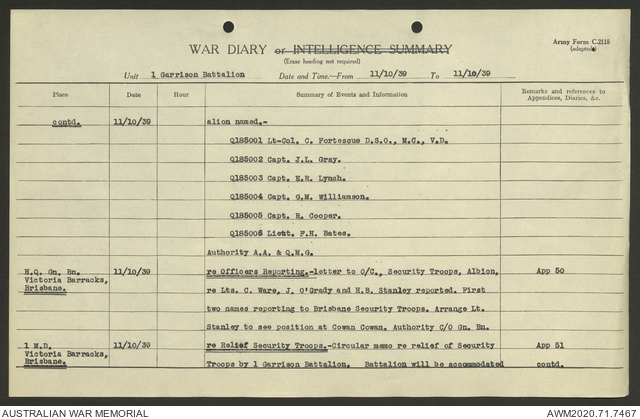 WAR DIARY or INTELLIGENCE SUMMARY
Army Form C.2118
(adapted)
(Erase heading not required)
Unit 1 Garrison Battalion Date and Time.—From 11/10/39 To 11/10/39
Place Date Hour Summary of Events and Information Remarks and references to Appendices, Diaries, &c.
contd. 11/10/39 alion named.-
Q185001 Lt-Col. C. Fortescue D.S.O., M.C., V.D.
Q185002 Capt. J.L. Gray.
Q185003 Capt. E.R. Lynch.
Q185004 Capt. G.M. Williamson.
Q185005 Capt. R. Cooper.
Q185006 Lieut. F.H. Bates.
Authority A.A. & Q.M.G.
H.Q. Gn. Bn. 11/10/39 re Officers Reporting.-letter to O/C., Security Troops, Albion, App 50
Victoria Barracks,
Brisbane. re Lts. C. Ware, J. O'Grady and H.B. Stanley reported. First
two names reporting to Brisbane Security Troops. Arrange Lt.
Stanley to see position at Cowan Cowan. Authority C/O Gn. Bn.
1 M.D. 11/10/39 re Relief Security Troops.-Circular memo re relief of Security App 51
Victoria Barracks,
Brisbane. Troops by 1 Garrison Battalion. Battalion will be accommodated contd.
AUSTRALIAN WAR MEMORIAL AWM2020.71.7467